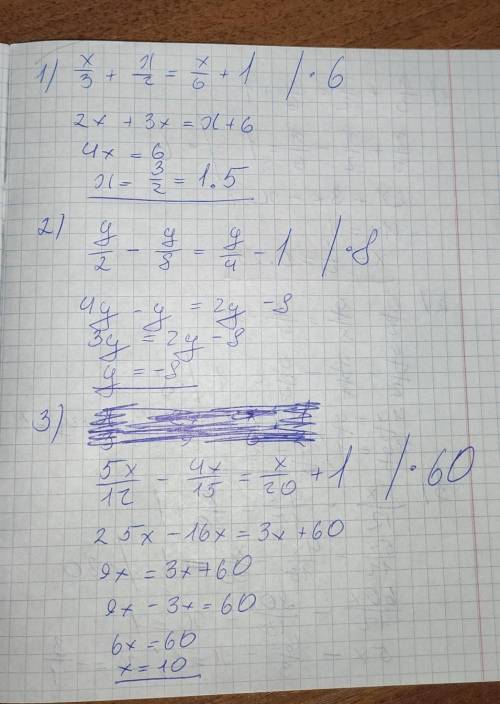 1) x/3 + x/2 = x/6 + 1 / · 6
2x + 3x = x + 6
4x = 6
x = 3/2 = 1.5
2) y/2 - y/8 = y/4 - 1 / · 8
4y - y = 2y - 8
3y = 2y - 8
y = -8
3)
5x/12 - 4x/15 = x/20 + 1 / · 60
25x - 16x = 3x + 60
9x = 3x + 60
9x - 3x = 60
6x = 60
x = 10